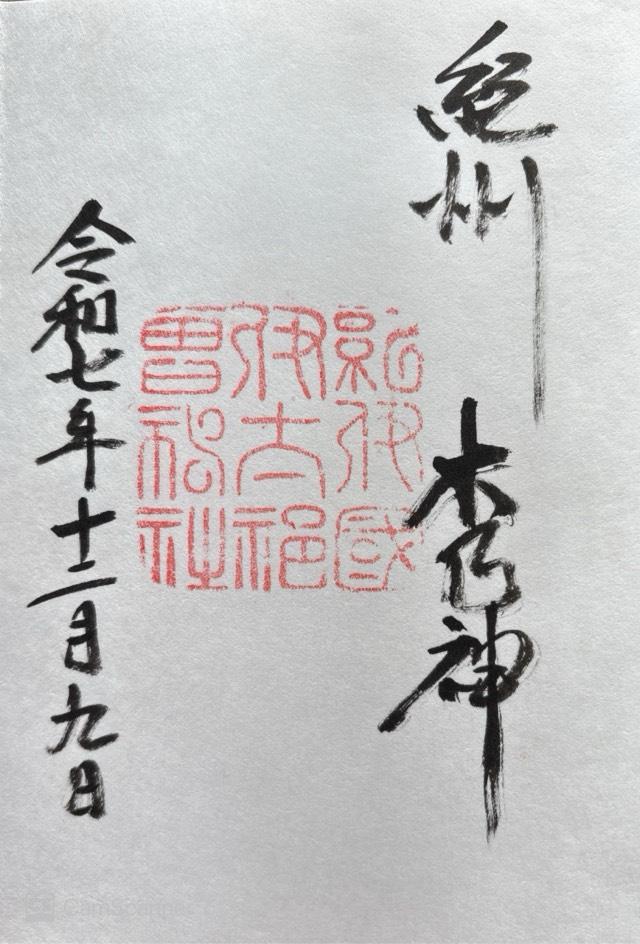 紀州
木乃神
紀伊國
伊太祁
曾神社
令和七年十二月九日
CamScanner